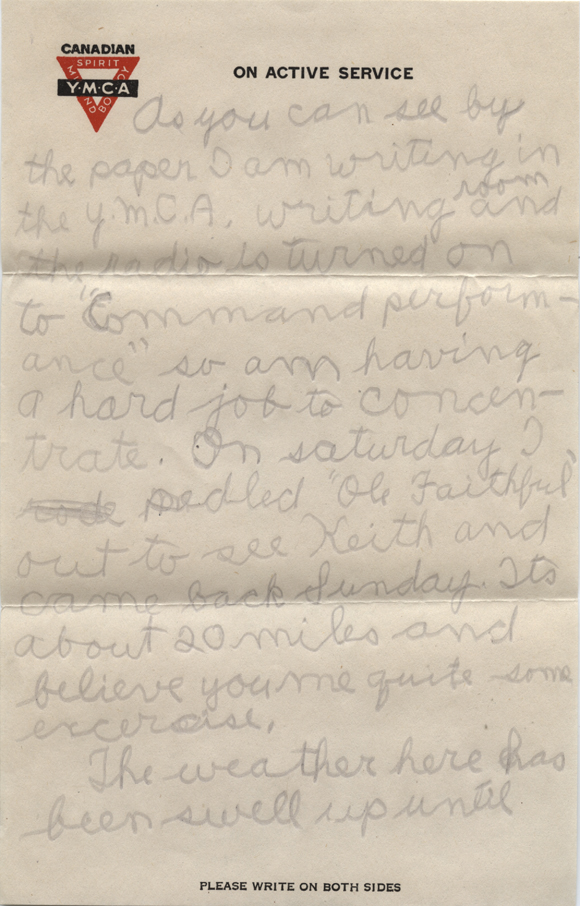 CANADIAN
SPIRIT
MIND
BODY
Y·M·C·A
ON ACTIVE SERVICE
As you can see by
the paper I am writing in
the Y.M.C.A. writing room and
the radio is turned on
to "Command perform-
ance" so am having
a hard job to concen-
trate. On saturday I
pedled "Ole Faithful"
out to see Keith and
came back Sunday. Its
about 20 miles and
believe you me quite some
excercise.
The weather here has
been swell up until
PLEASE WRITE ON BOTH SIDES